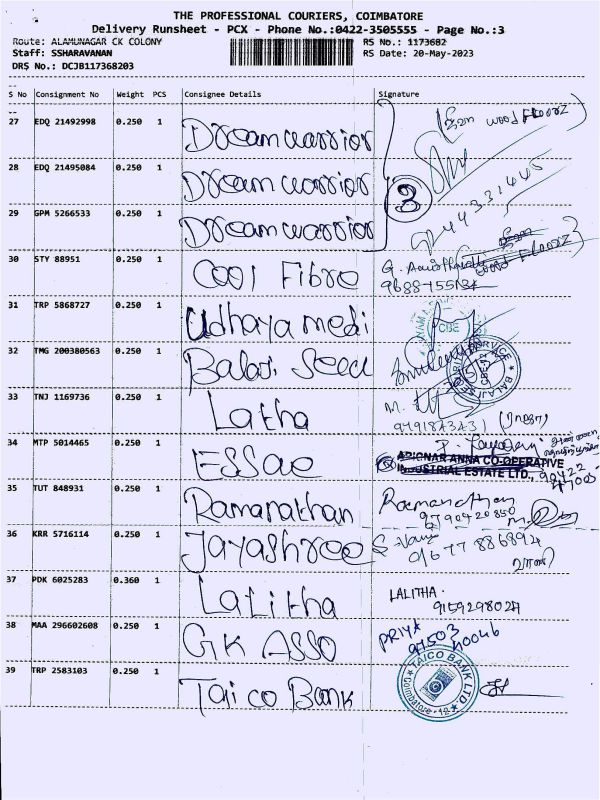 THE PROFESSIONAL COURIERS, COIMBATORE
Delivery Runsheet - PCX - Phone No.:0422-3505555 - Page No.:3
Route: ALAMUNAGAR CK COLONY RS No.: 1173682
Staff: SSHARAVANAN RS Date: 20-May-2023
DRS No.: DCJB117368203
S No Consignment No Weight PCS Consignee Details Signature
27 EDQ 21492998 0.250 1 Dreamwarrior wood FLOORZ
28 EDQ 21495084 0.250 1 Dreamwarrior 3
29 GPM 5266533 0.250 1 Dreamwarrior 44331445
30 STY 88951 0.250 1 COOL Fibre
31 TRP 5868727 0.250 1 Udhaya medi
32 TMG 200380563 0.250 1 Balaji Seed
33 TNJ 1169736 0.250 1 Latha
34 MTP 5014465 0.250 1 ESSae ARIGNAR ANNA CO-OPERATIVE
INDUSTRIAL ESTATE LTD.,
35 TUT 848931 0.250 1 Ramanathan Ramanathan
9790420850
36 KRR 5716114 0.250 1 Jayashree
37 PDK 6025283 0.360 1 Lalitha LALITHA.
9159298027
38 MAA 296602608 0.250 1 GK ASSO PRIYA
39 TRP 2583103 0.250 1 Taico Bank TAICO BANK LTD
Coimbatore - 18